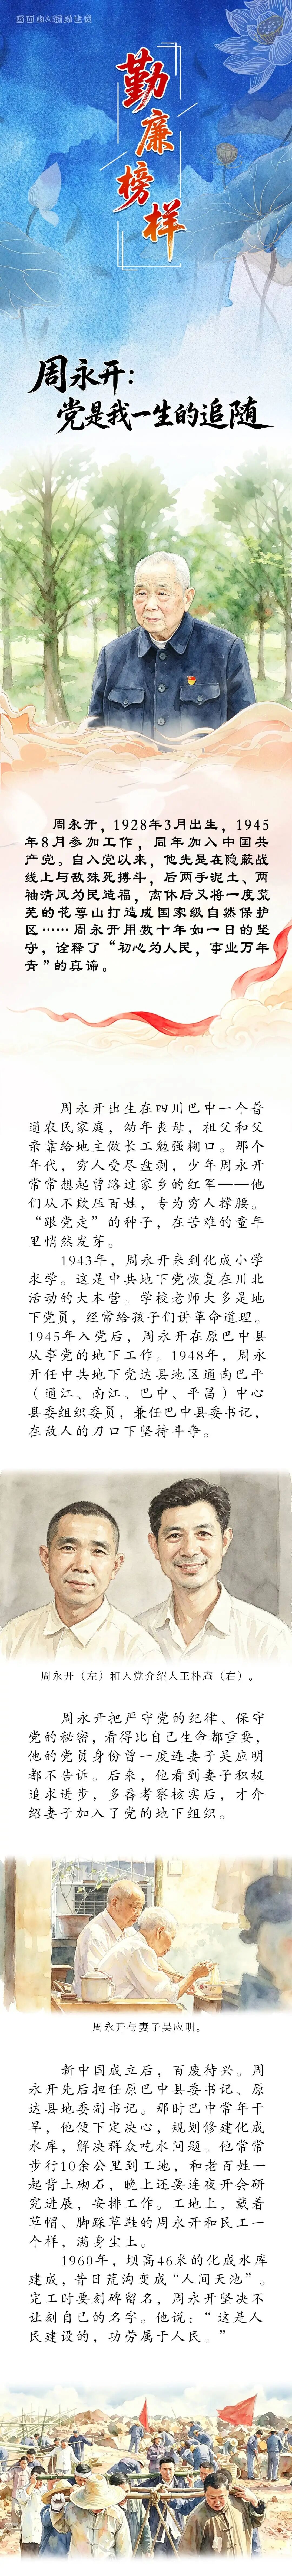 画面由AI辅助生成
勤廉榜样
周永开：
党是我一生的追随
周永开，1928年3月出生，1945
年8月参加工作，同年加入中国共
产党。自入党以来，他先是在隐蔽战
线上与敌殊死搏斗，后两手泥土、两
袖清风为民造福，离休后又将一度荒
芜的花萼山打造成国家级自然保护
区……周永开用数十年如一日的坚
守，诠释了“初心为人民，事业万年
青”的真谛。
周永开出生在四川巴中一个普
通农民家庭，幼年丧母，祖父和父
亲靠给地主做长工勉强糊口。那个
年代，穷人受尽盘剥，少年周永开
常常想起曾路过家乡的红军——他
们从不欺压百姓，专为穷人撑腰。
“跟党走”的种子，在苦难的童年
里悄然发芽。
1943年，周永开来到化成小学
求学。这是中共地下党恢复在川北
活动的大本营。学校老师大多是地
下党员，经常给孩子们讲革命道理。
1945年入党后，周永开在原巴中县
从事党的地下工作。1948年，周永
开任中共地下党达县地区通南巴平
（通江、南江、巴中、平昌）中心
县委组织委员，兼任巴中县委书记，
在敌人的刀口下坚持斗争。
周永开（左）和入党介绍人王朴庵（右）。
周永开把严守党的纪律、保守
党的秘密，看得比自己生命都重要，
他的党员身份曾一度连妻子吴应明
都不告诉。后来，他看到妻子积极
追求进步，多番考察核实后，才介
绍妻子加入了党的地下组织。
周永开与妻子吴应明。
新中国成立后，百废待兴。周
永开先后担任原巴中县委书记、原
达县地委副书记。那时巴中常年干
旱，他便下定决心，规划修建化成
水库，解决群众吃水问题。他常常
步行10余公里到工地，和老百姓一
起背土砌石，晚上还要连夜开会研
究进展，安排工作。工地上，戴着
草帽、脚踩草鞋的周永开和民工一
个样，满身尘土。
1960年，坝高46米的化成水库
建成，昔日荒沟变成“人间天池”。
完工时要刻碑留名，周永开坚决不
让刻自己的名字。他说：“这是人
民建设的，功劳属于人民。”